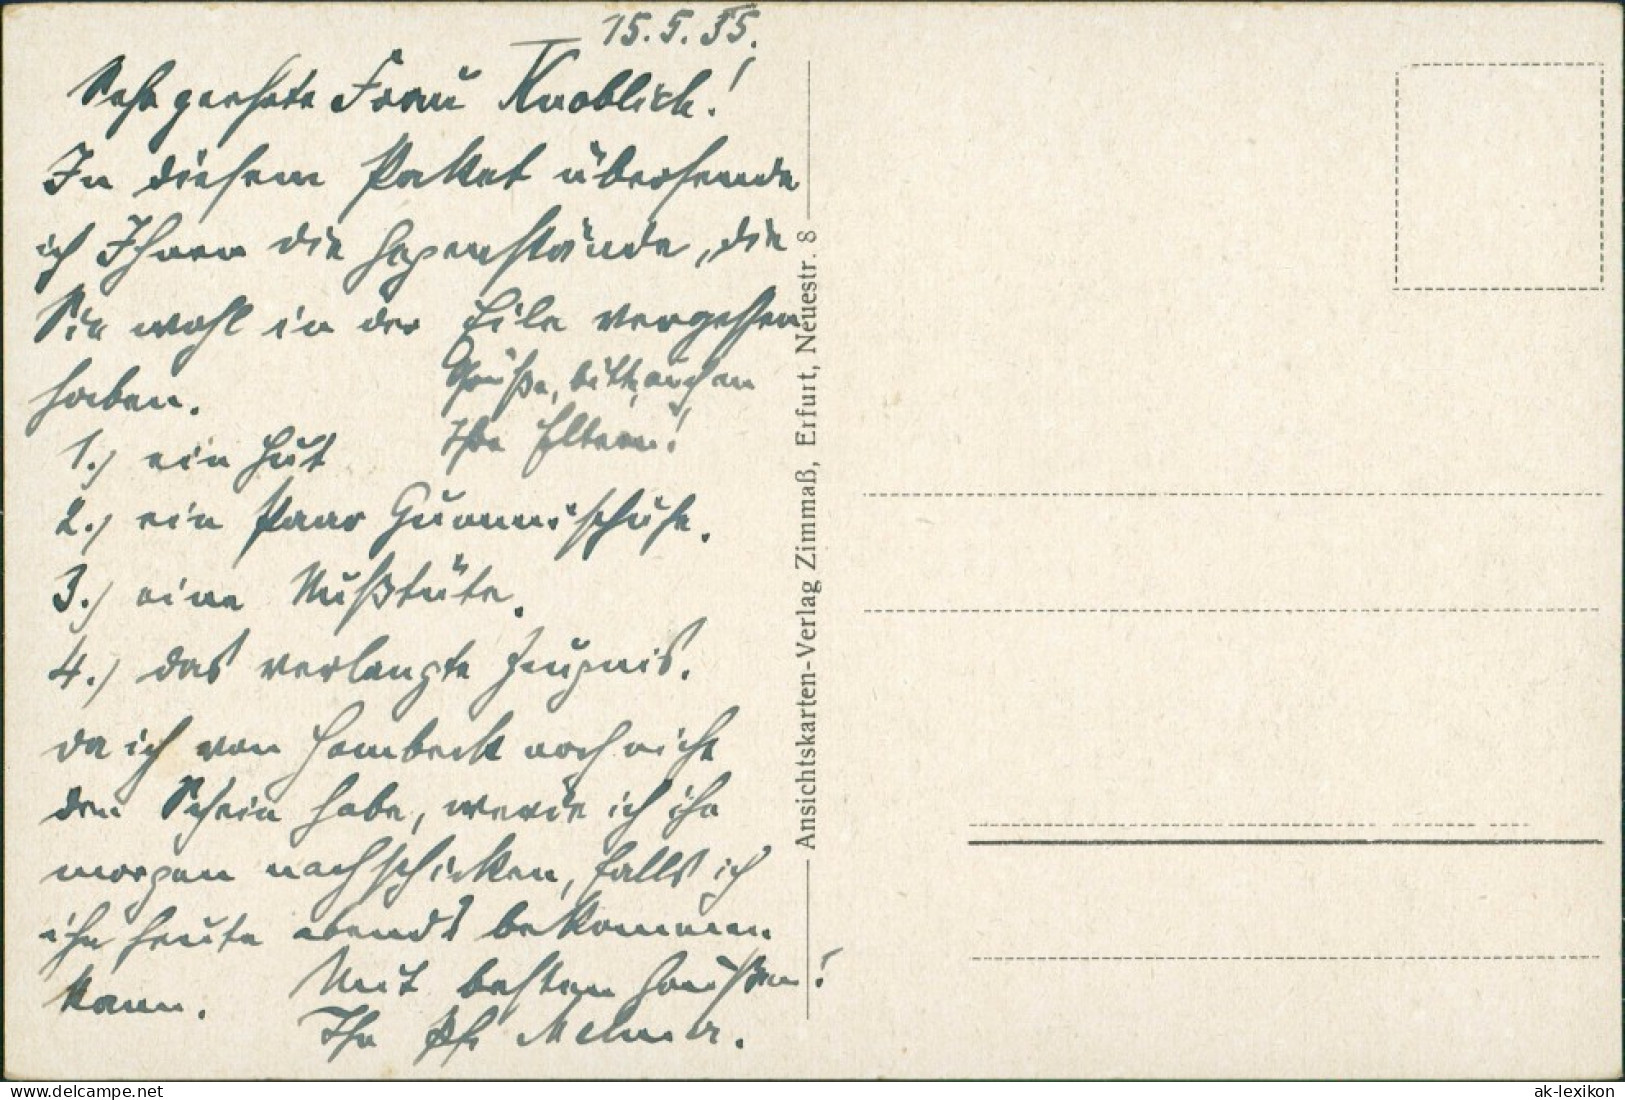 15.5.35.
Sehr geehrte Frau Knoblich!
In diesem Paket übersende
ich Ihnen die Gegenstände, die
Sie wohl in der Eile vergessen
haben.
Grüße, bitte, auch an
Ihre Eltern!
1.) ein Hut
2.) ein Paar Gummischuhe.
3.) eine Nußtüte.
4.) das verlangte Zeugnis.
da ich von Hambeck noch nicht
den Schein habe, werde ich ihn
morgen nachschicken, falls ich
ihn heute abends bekommen
kann.
Mit besten Grüßen!
Ihr
Ansichtskarten-Verlag Zimmaß, Erfurt, Neuestr. 8
© The-Kings
ak-lexikon